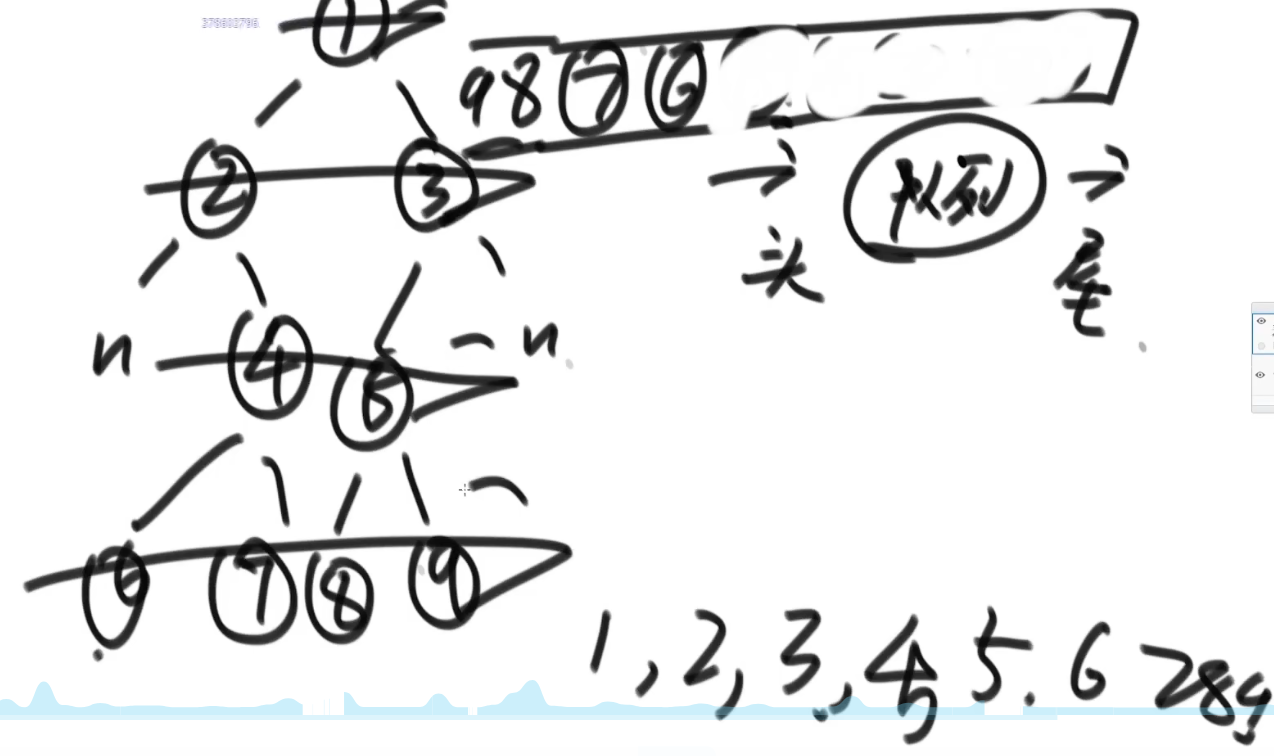 378602796
1
9 8 7 6
2 3
队列
头 尾
n 4 5 n
6 7 8 9
1,2,3,4 5.6 7 8 9